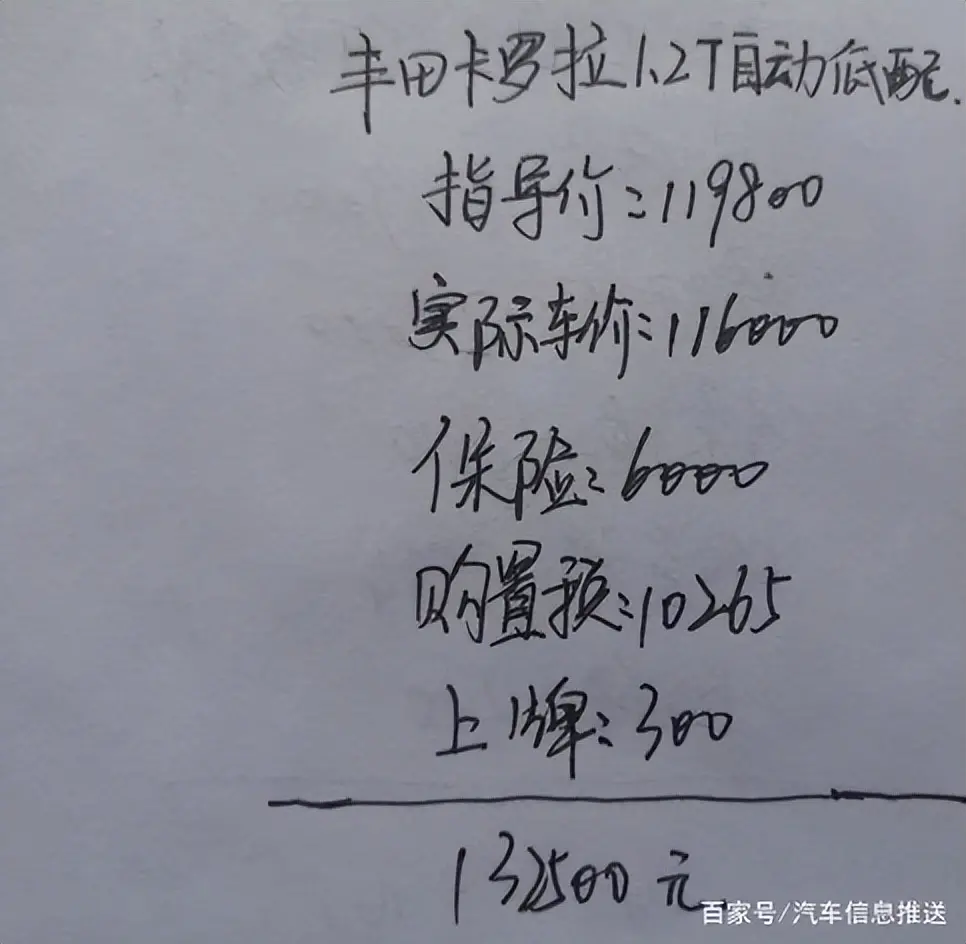 丰田卡罗拉1.2T自动低配.
指导价:119800
实际车价:116000
保险:6000
购置预:10265
上牌:300
132500元
百家号/汽车信息推送